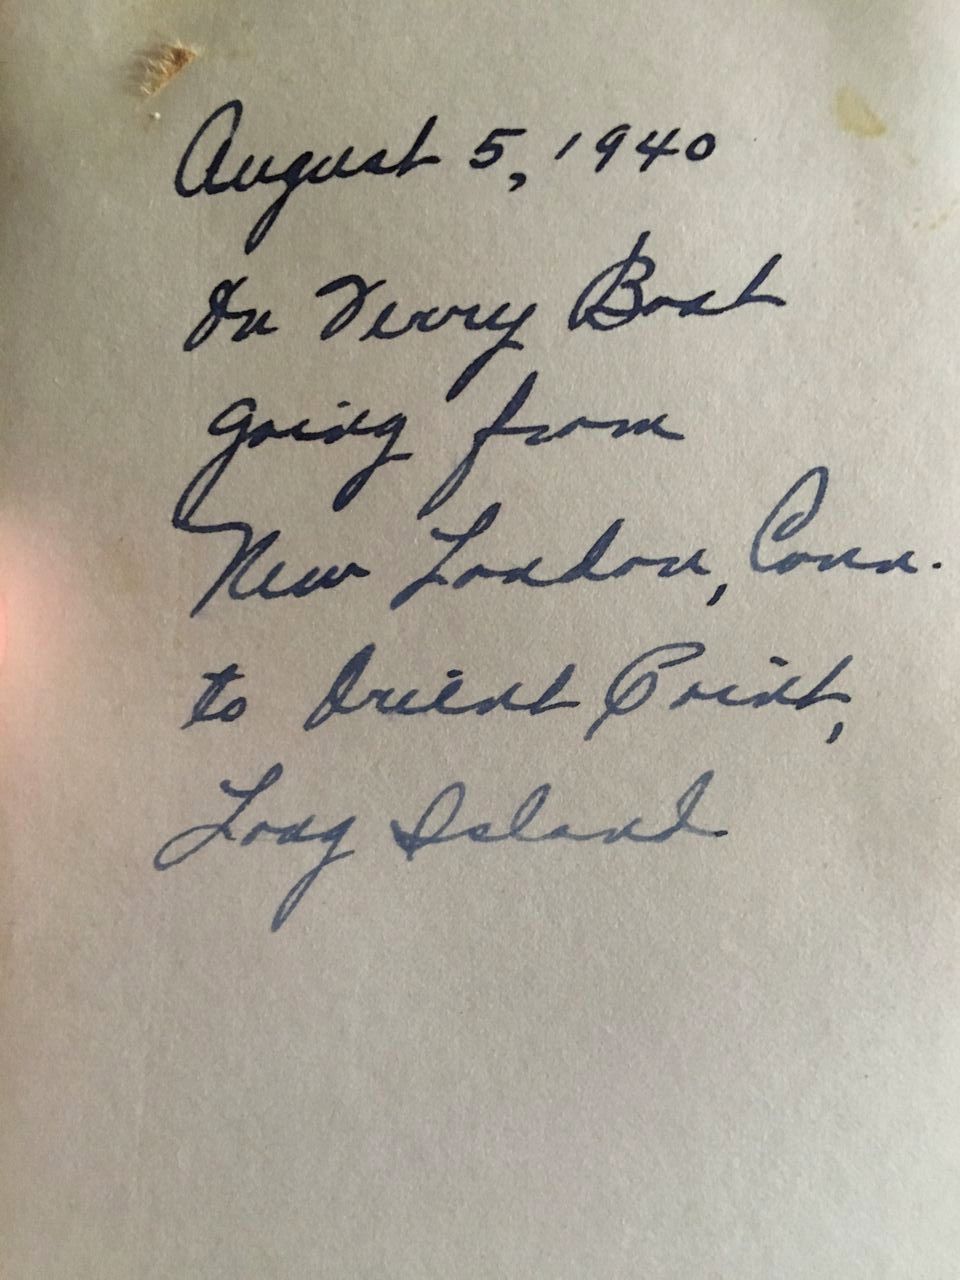 August 5, 1940
On Ferry Boat
going from
New London, Conn.
to Orient Point,
Long Island